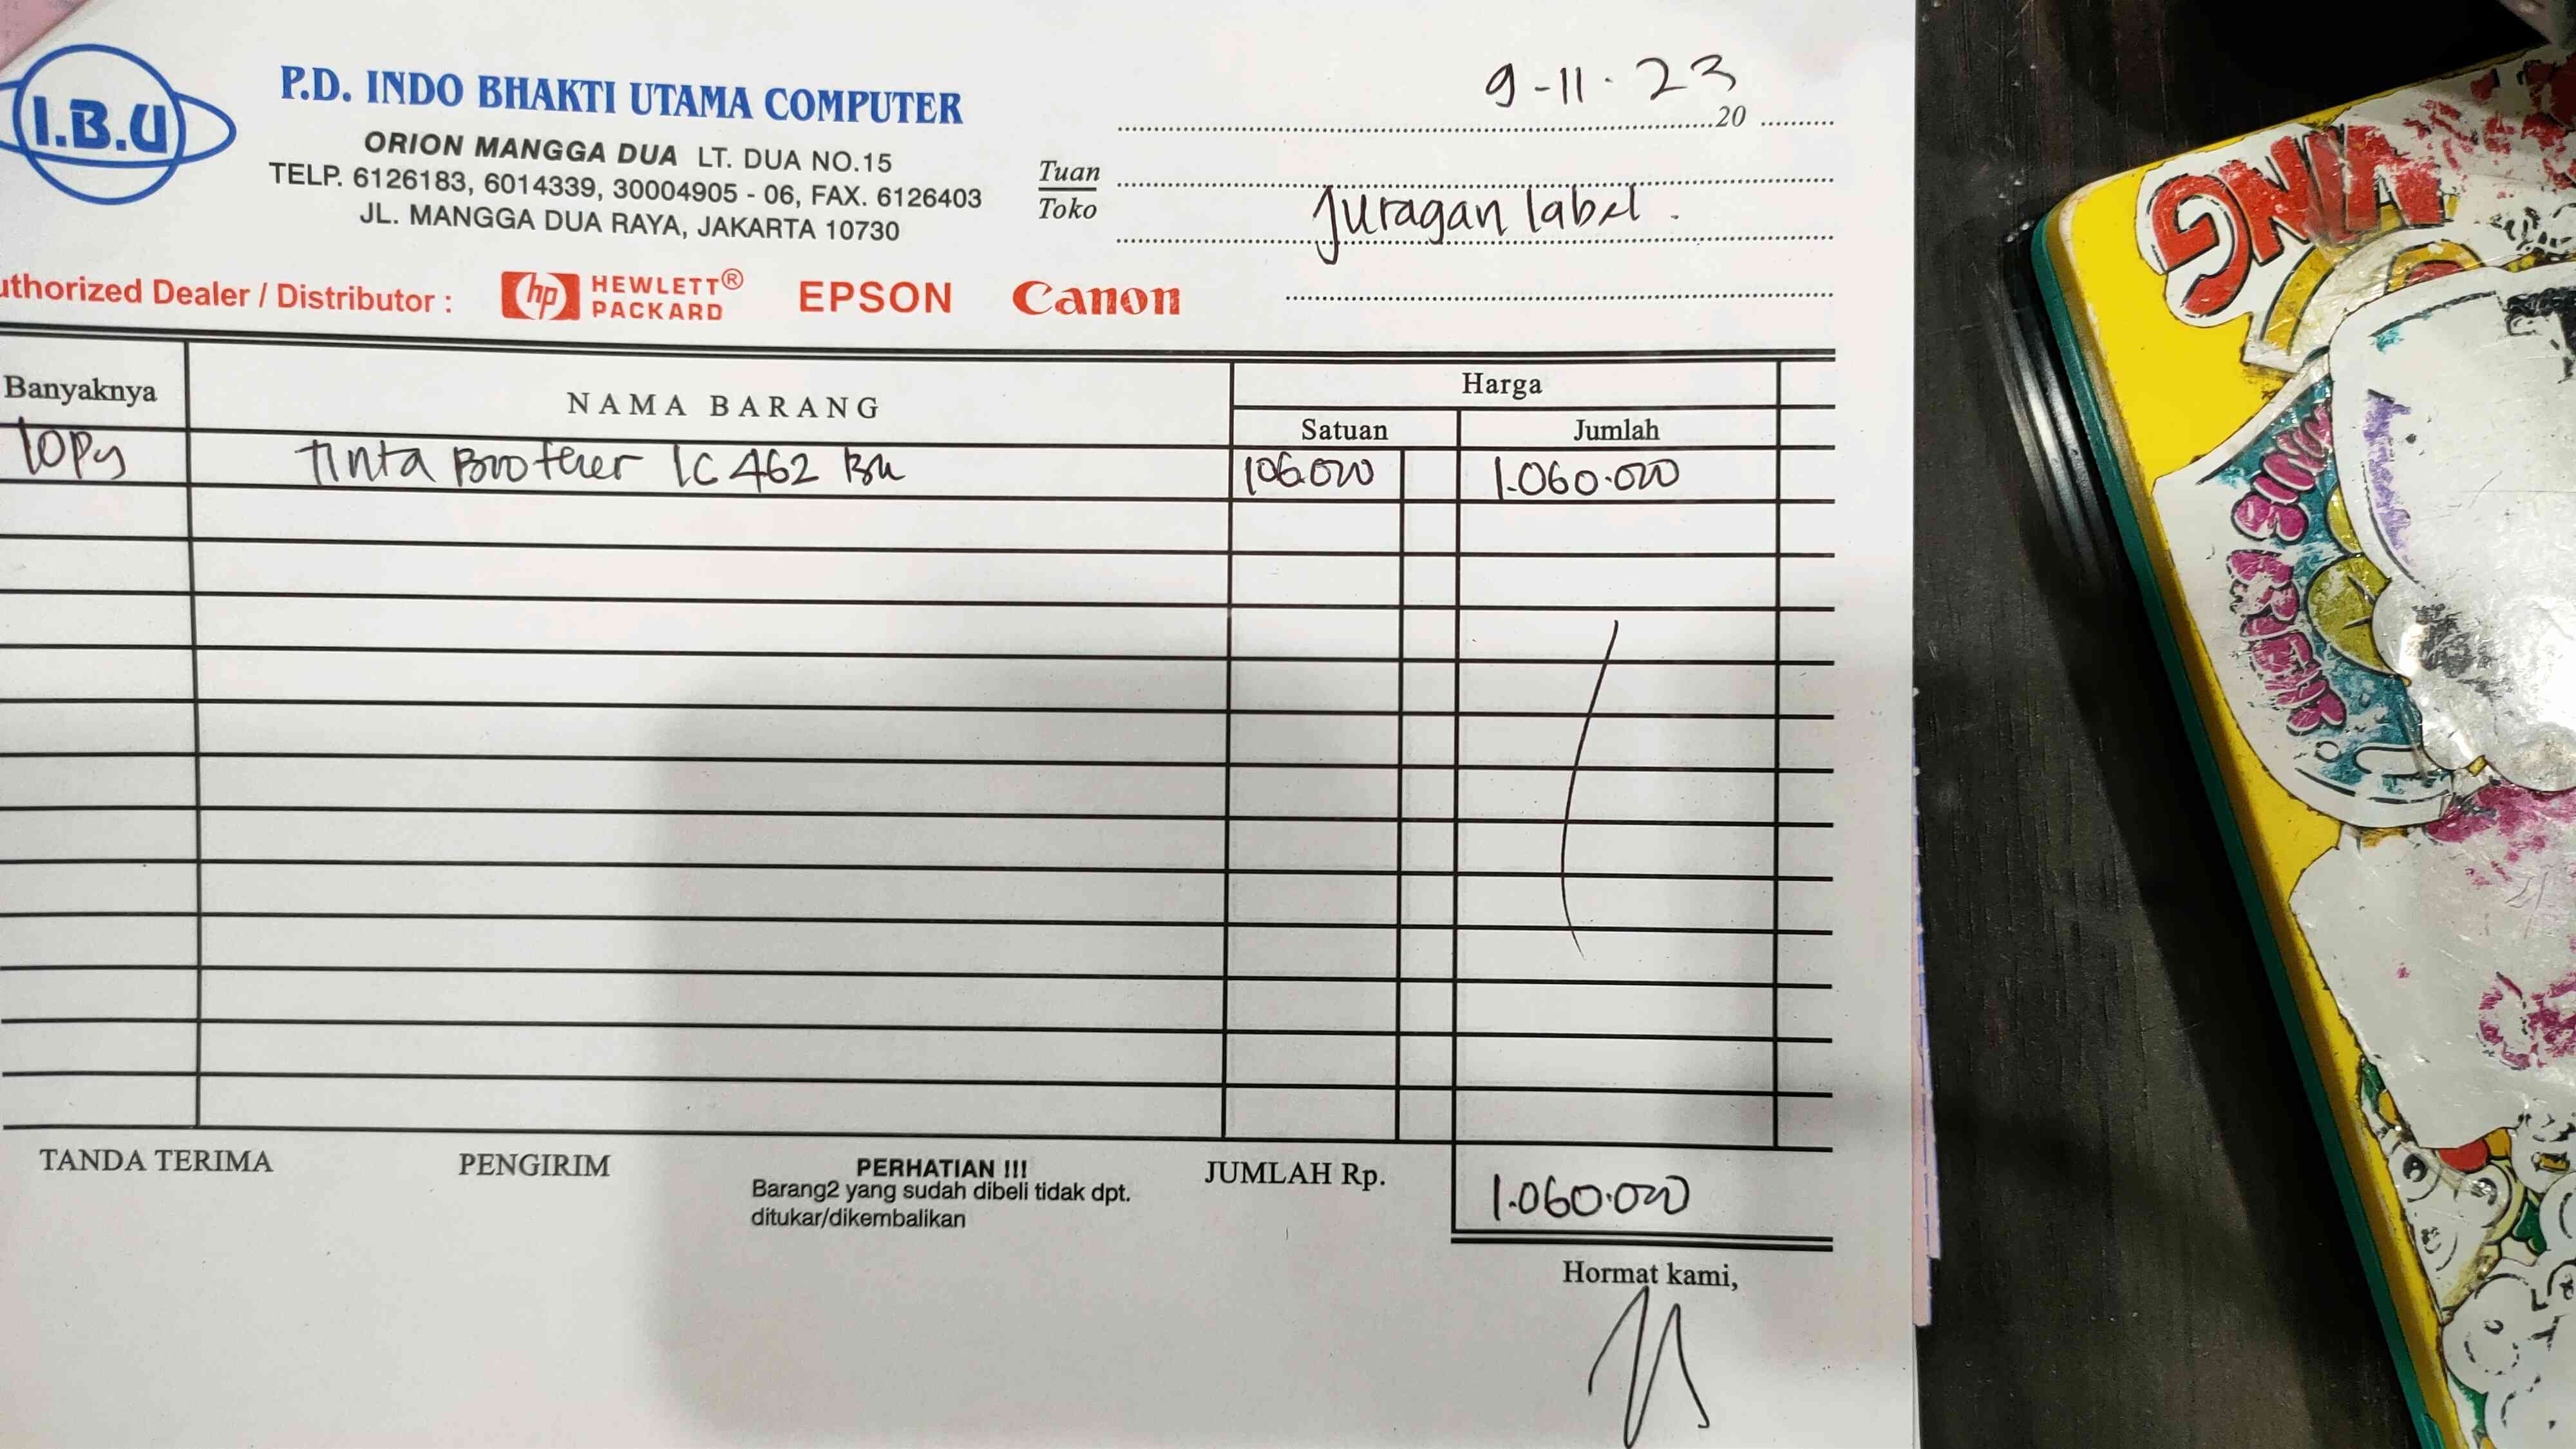 I.B.U
P.D. INDO BHAKTI UTAMA COMPUTER
ORION MANGGA DUA LT. DUA NO.15
TELP. 6126183, 6014339, 30004905 - 06, FAX. 6126403
JL. MANGGA DUA RAYA, JAKARTA 10730
9-11-23
20
Tuan
Toko
Juragan label.
uthorized Dealer / Distributor :
hp HEWLETT® PACKARD EPSON Canon
Banyaknya NAMA BARANG Harga
Satuan Jumlah
10 Tinta Brother LC 462 BK 106.000 1.060.000
TANDA TERIMA PENGIRIM PERHATIAN !!! JUMLAH Rp. 1.060.000
Barang2 yang sudah dibeli tidak dpt.
ditukar/dikembalikan
Hormat kami,